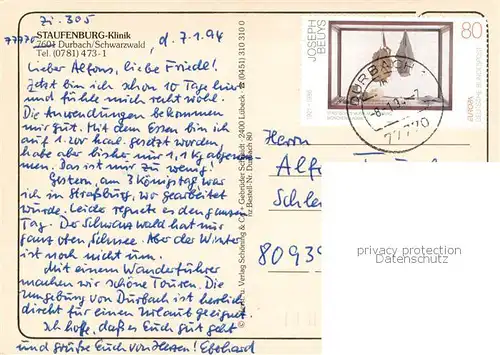 Zi. 305
STAUFENBURG-Klinik
77770
7601 Durbach/Schwarzwald
Tel. (0781) 473-1
d. 7.1.94
Lieber Alfons, liebe Friedl!
Jetzt bin ich schon 10 Tage hier
und fühle mich recht wohl.
Die Anwendungen bekommen
mir gut. Mit dem Essen bin ich
auf 1.200 kcal. gesetzt worden,
habe aber bisher nur 1,1 kg abgenom-
men. Das ist nur zu wenig!
Gestern, am 3 Königstag, war
ich in Straßburg, wo gearbeitet
wurde. Leider regnet es den ganzen
Tag. Der Schwarzwald hat nur
ganz oben Schnee. Aber der Winter
ist noch nicht um.
Mit einem Wanderführer
machen wir schöne Touren. Die
Umgebung von Durbach ist herrlich
direkt für einen Urlaub geeignet.
Ich hoffe, daß es Euch gut geht
und grüße Euch von Herzen! Eberhard
u. Verlag Schöning & Co + Gebrüder Schmidt · 2400 Lübeck · ☎ (0451) 310 310 0
Bestell-Nr. Durbach 80
JOSEPH
BEUYS
1921-1986
80
EUROPA
DEUTSCHE BUNDESPOST
DURBACH
77770
Herrn
Alf
Schle
80939
privacy protection
www.oldthing.de